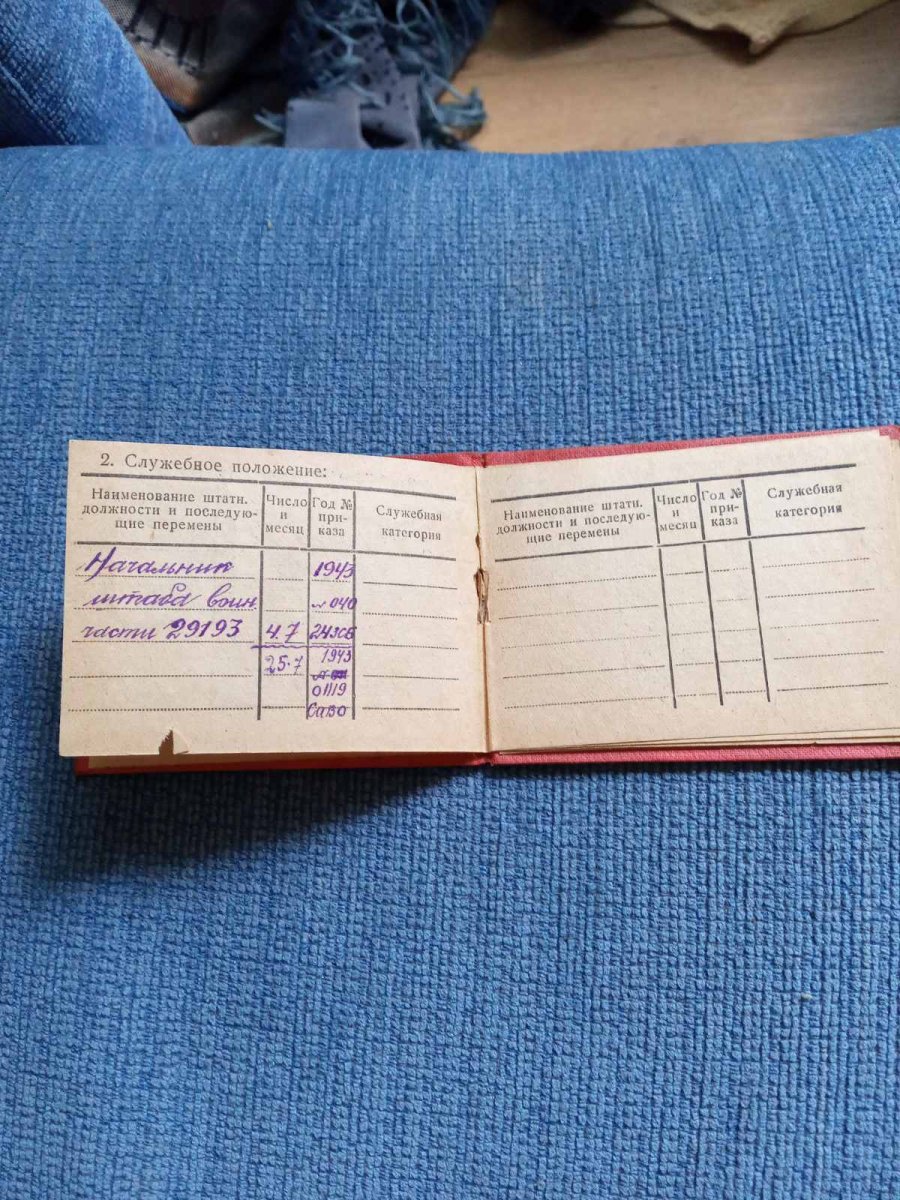 2. Служебное положение:
Наименование штатн. должности и последую-щие перемены
Число и месяц
Год № при-каза
Служебная категория
Начальник 1943
штаба воин. № 040
части 29193 4.7
25.7 1943
01119
Наименование штатн. должности и последую-щие перемены
Число и месяц
Год № при-каза
Служебная категория